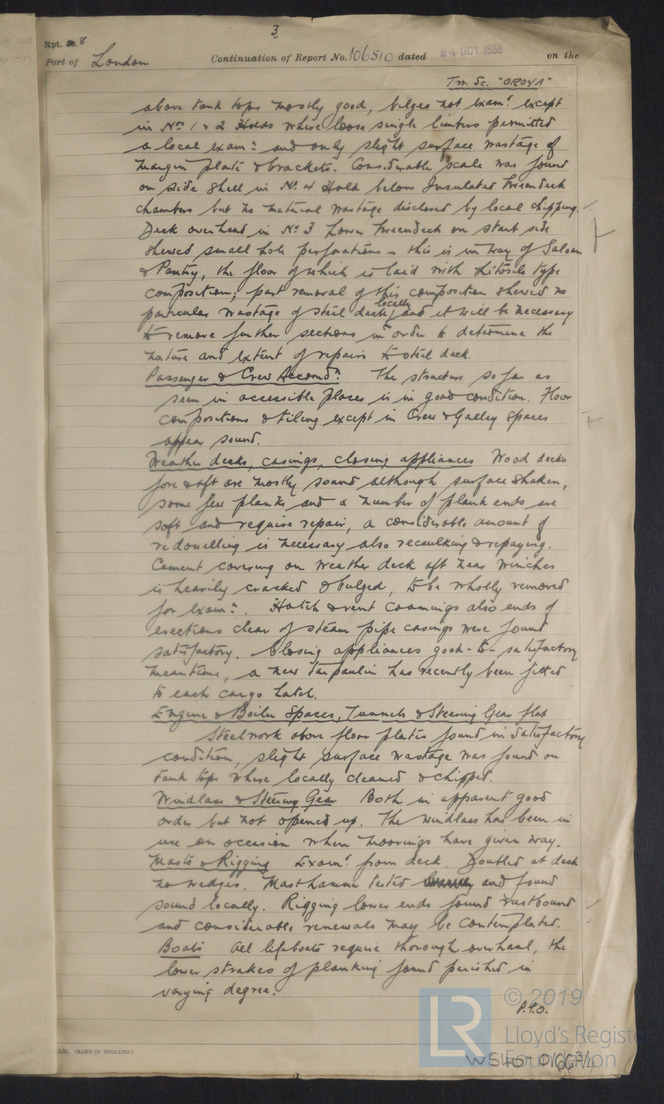 3
Rpt. 8
Port of London Continuation of Report No. 106510 dated 24 OCT 1936 on the
Tw. Sc. "OROYA"
above tank tops mostly good, bilges not exam? except
in Nos 1 & 2 Holds where loose single limbers permitted
a local exam: and only slight surface wastage of
margin plate & brackets. Considerable scale was found
on side shell in No. 4 Hold below Insulated Tweendeck
chambers but no material wastage disclosed by local chipping.
Deck overhead in No. 3 Lower Tweendeck on starb side
shewed small hole perforations – this is in way of Saloon
& Pantry, the floor of which is laid with type
composition; part removal of this composition shewed no
particular wastage of steel deck locally and it will be necessary
to remove further sections in order to determine the
nature and extent of repairs to steel deck.
Passenger & Crew Accomdn. The structure so far as
seen in accessible places is in good condition. Floor
compositions & tiling except in Crew & Galley spaces
appear sound.
Weather decks, casings, closing appliances Wood decks
fore & aft are mostly sound although surface shaken,
some few planks and a number of plank ends are
soft and require repair, a considerable amount of
redowelling is necessary also recaulking & repaying.
Cement covering on weather deck aft near winches
is heavily cracked & bulged, to be wholly removed
for exam:. Hatch & vent coamings also ends of
erections clear of steam pipe casings were found
satisfactory. Closing appliances good - to - satisfactory
meantime, a new tarpaulin has recently been fitted
to each cargo hatch.
Engine & Boiler Spaces, Tunnels & Steering Gear flat
Steelwork above floor plates found in satisfactory
condition, slight surface wastage was found on
tank tops where locally cleaned & chipped.
Windlass & Steering Gear Both in apparent good
order but not opened up. The windlass has been in
use on occasion when moorings have given way.
Masts & Rigging Exam? from deck. Doubled at deck
no wedges. Masthammer tested and found
sound locally. Rigging lower ends found rustbound
and considerable renewals may be contemplated.
Boats All lifeboats require thorough overhaul, the
lower strakes of planking found perished in
varying degree.
P.T.O.
© 2019
Lloyd's Register
Foundation
(MADE IN ENGLAND.)